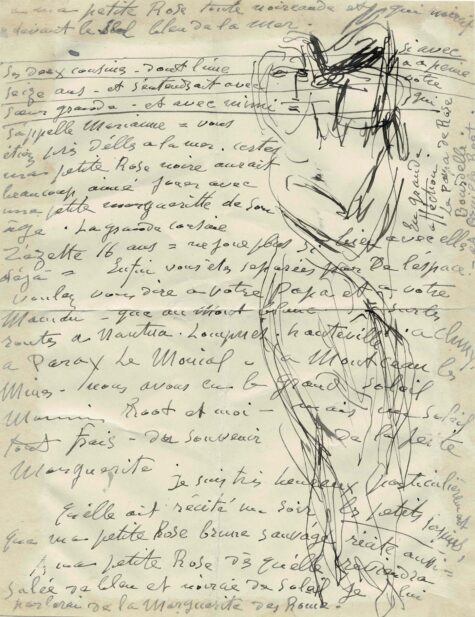 a ma petite Rose toute noireaude et qui noircit
devant le bleu de la mer
Ses deux cousines - dont l'une
seize ans - et s'entendait avec
sœur grande - et avec mimi
s'appelle Marianne = vous
étiez près d'elles a la mer. certes
ma petite Rose noire aurait
beaucoup aimé jouer avec
une petite marguerite de son
age. La grande cousine
Zézette 16 ans = ne joue plus si bien avec elle
déjà = Enfin vous êtes séparées par de l'espace
voulez vous dire a votre Papa et a votre
Maman - que au Mont blanc - sur les
routes a Nantua. hauteville. a Cluny
a Paray Le Monial - a Montceau les
Mines. nous avons eu le grand soleil
Maman Root et moi - mais un soleil
tout frais - du souvenir de la petite
Marguerite
je suis très heureux particulièrement
qu'elle ait récité un soir les petits
que ma petite Rose brune sauvage récite aussi =
a ma petite Rose dès qu'elle reviendra
salée de bleu et noircie de soleil je lui
parlerai de la Marguerite
si avec
a peine
votre
qui
En grande
affection
Le Papa de Rose
Bourdelle